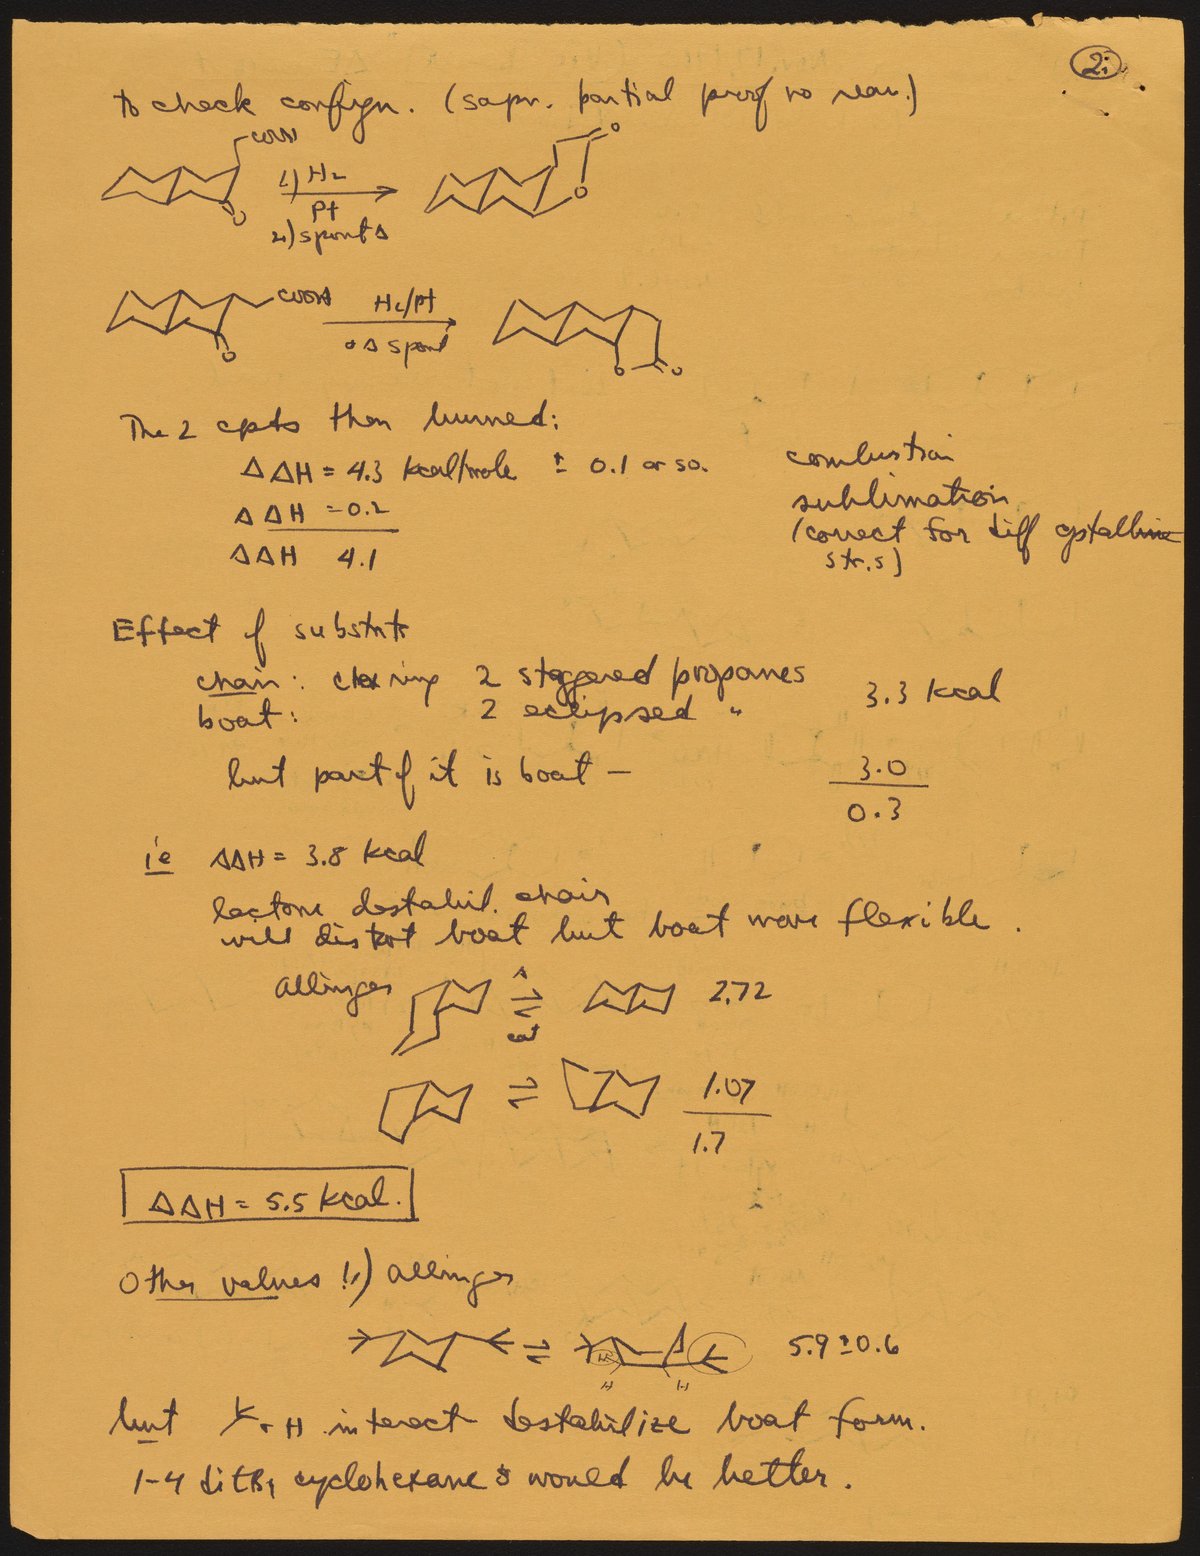 2:
to check confign. (sapn. partial proof no rear.)
COOH
1) H2
Pt
2) spont Δ
O
O
O
COOH
H2/Pt
Δ spont
O
O
O
The 2 cpds then burned:
ΔΔH = 4.3 kcal/mole ± 0.1 or so.
combustion
ΔΔH = 0.2
sublimation
(correct for diff cystalline
strs)
ΔΔH 4.1
Effect of substnts
chair: ring 2 staggered propanes
3.3 kcal
boat: 2 eclipsed "
but part of it is boat —
3.0
0.3
ie ΔΔH = 3.8 kcal
lactone destabil. chair
will distort boat but boat more flexible.
Allinger
Δ
cat
2.72
1.07
1.7
ΔΔH = 5.5 kcal.
Other values 1) Allinger
H
H
H
5.9 ± 0.6
but + H interact destabilize boat form.
1-4 ditBu cyclohexane would be better.